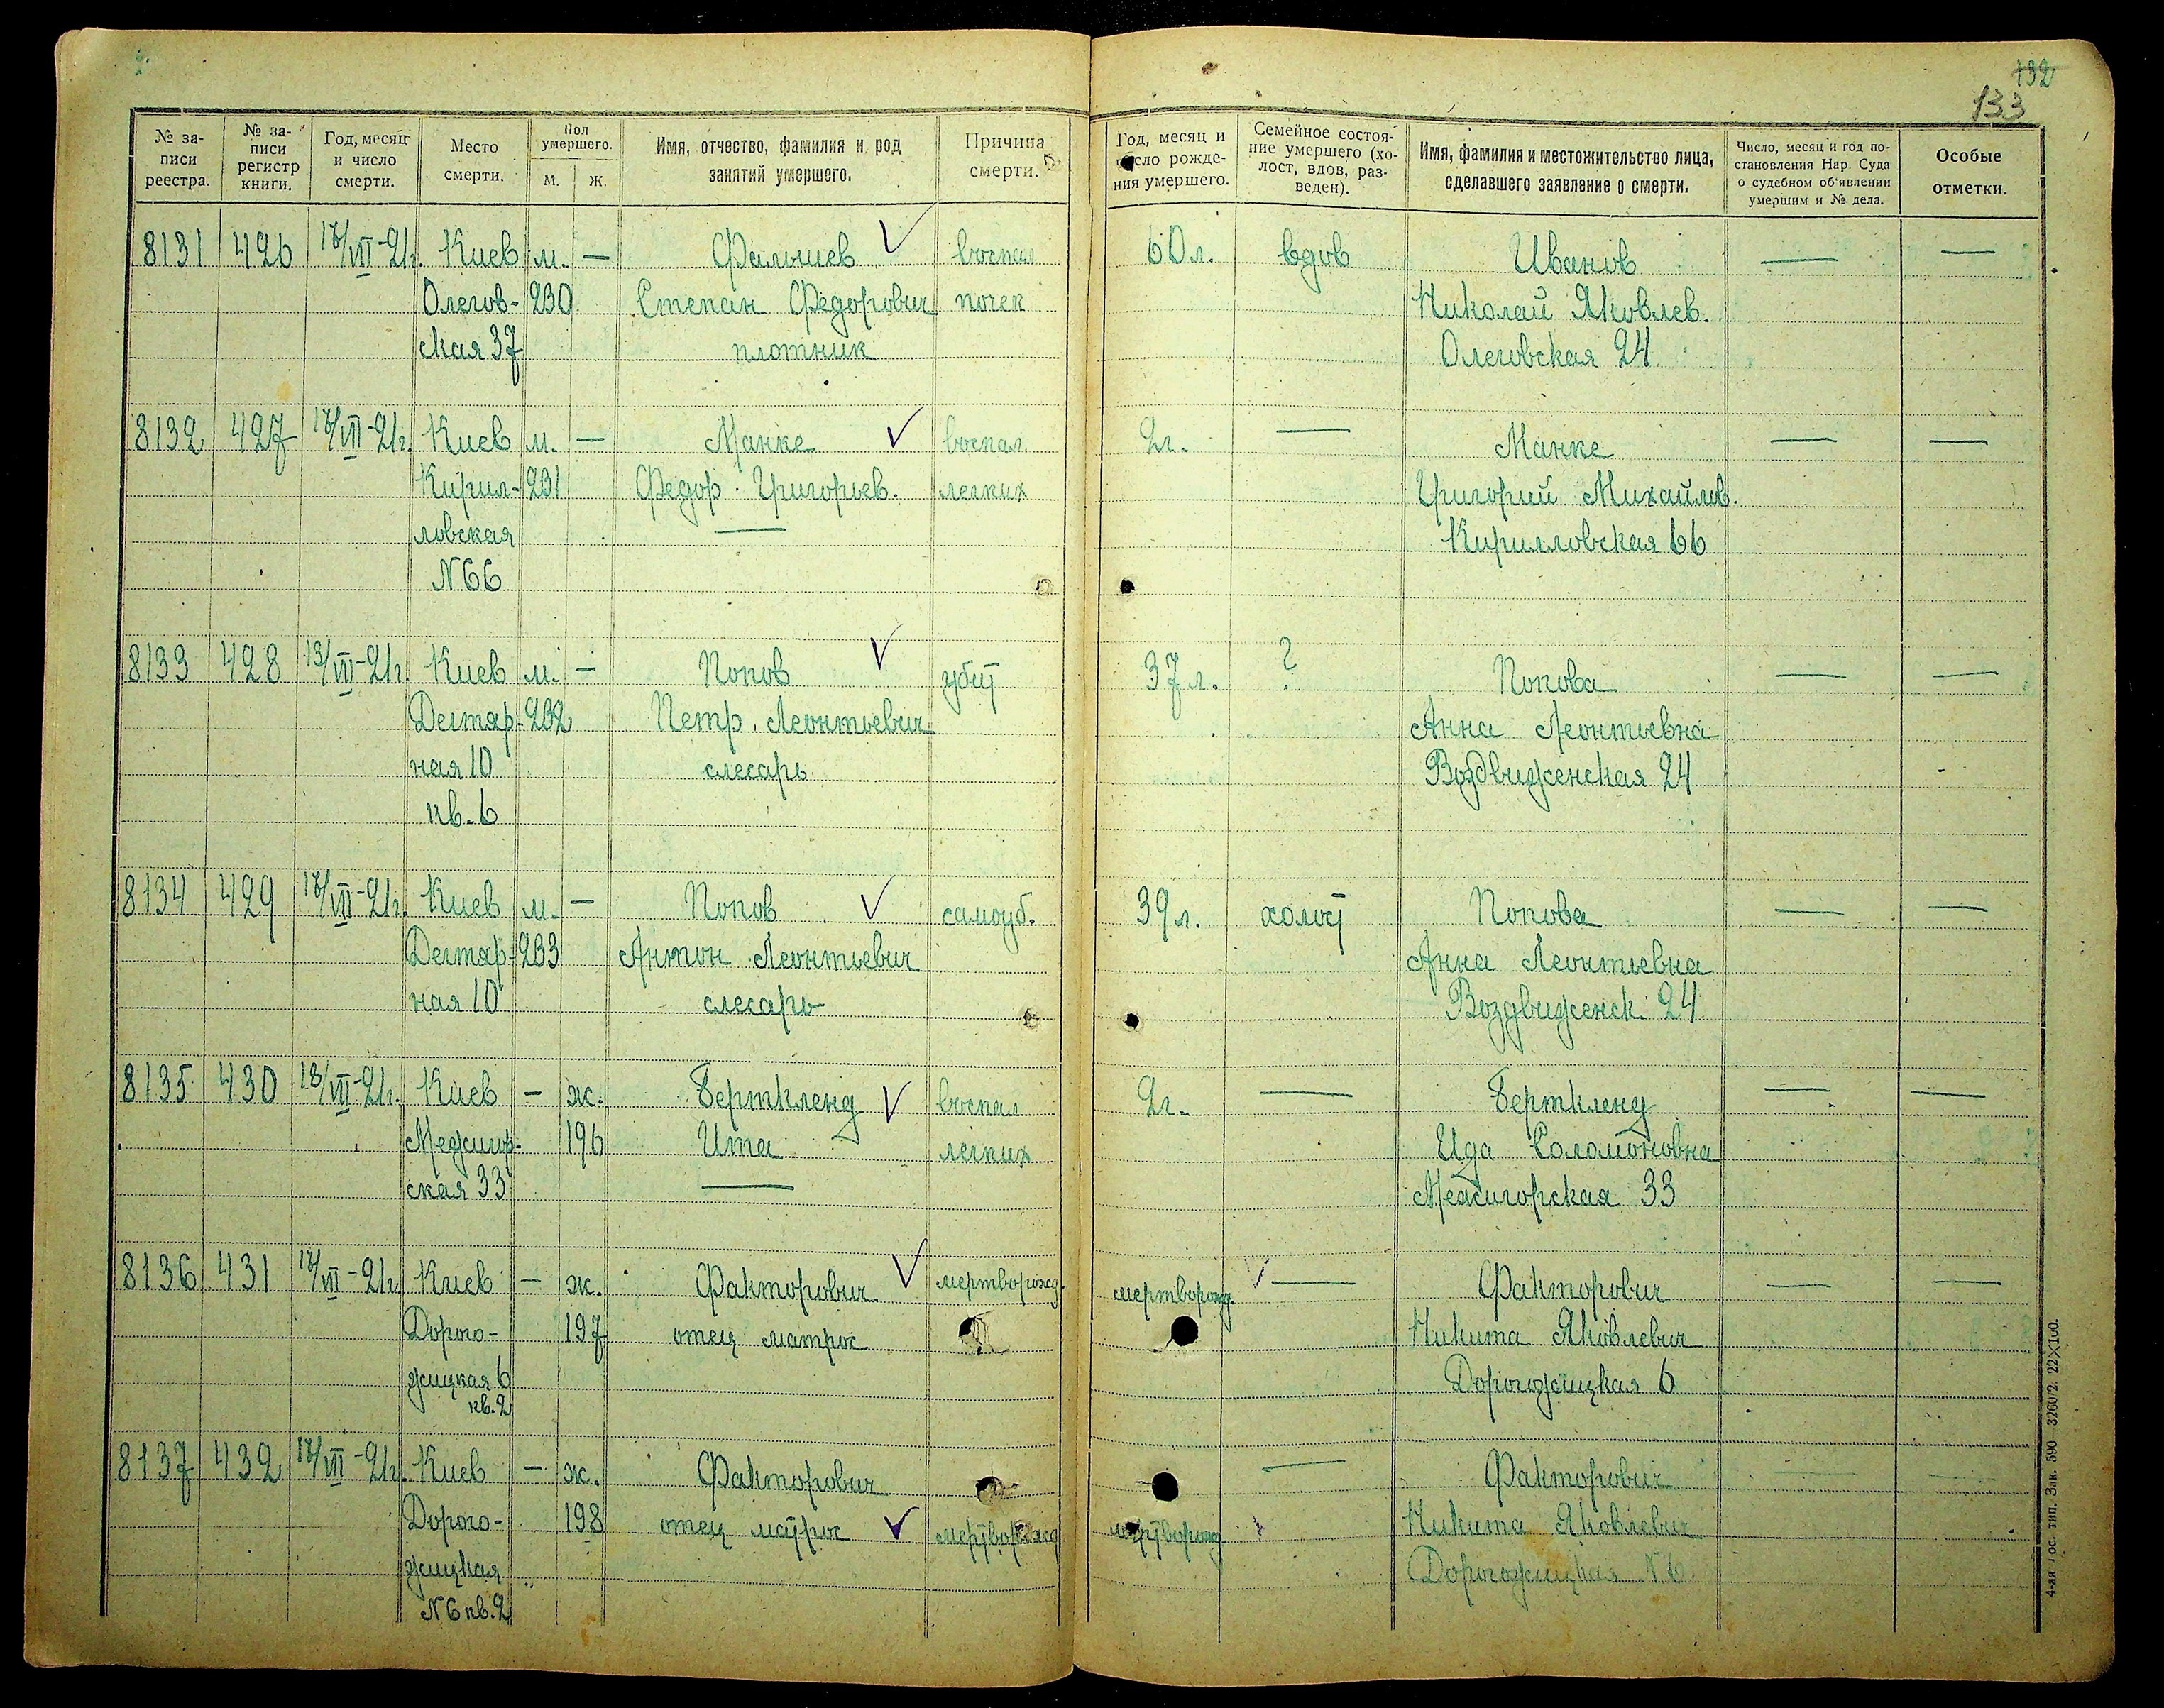 132
133
№ за-
писи
реестра.
№ за-
писи
регистр
книги.
Год, месяц
и число
смерти.
Место
смерти.
Пол
умершего.
м.
ж.
Имя, отчество, фамилия и род
занятий умершего.
Причина
смерти.
Год, месяц и
число рожде-
ния умершего.
Семейное состоя-
ние умершего (хо-
лост, вдов, раз-
веден).
Имя, фамилия и местожительство лица,
сделавшего заявление о смерти.
Число, месяц и год по-
становления Нар. Суда
о судебном об'явлении
умершим и № дела.
Особые
отметки.
8131 426 17/VII-21г. Киев м. — Фалышев воспал 60л. вдов Иванов — —
Олегов- 230 Степан Федорович почек Николай Яковлев.
ская 37 плотник Олеговская 24
8132 427 17/VII-21г. Киев м. — Манке воспал. 2г. — Манке — —
Кирил- 231 Федор Григорьев. легких Григорий Михайлов.
ловская — Кирилловская 66
N66
8133 428 13/VII-21г. Киев м. — Попов убит 37л. ? Попова — —
Дегтяр- 232 Петр Леонтьевич Анна Леонтьевна
ная 10 слесарь Воздвиженская 24
кв. 6
8134 429 17/VII-21г. Киев м. — Попов самоуб. 39л. холост Попова — —
Дегтяр- 233 Антон Леонтьевич Анна Леонтьевна
ная 10 слесарь Воздвиженск. 24
8135 430 18/VII-21г. Киев — ж. Берткленд воспал 2г. — Берткленд — —
Межигор- 196 Ита легких Ида Соломоновна
ская 33 — Межигорская 33
8136 431 17/VII-21г. Киев — ж. Факторович мертворожд. мертворожд. — Факторович — —
Дорого- 197 отец матрос Никита Яковлевич
жицкая 6 Дорогожицкая 6
кв. 2
8137 432 17/VII-21г. Киев — ж. Факторович — Факторович — —
Дорого- 198 отец матрос мертворожд. мертворожд. Никита Яковлевич
жицкая Дорогожицкая N6.
N6 кв. 2
4-ая Гос. тип. Зак. 590 3260/2. 22×100.